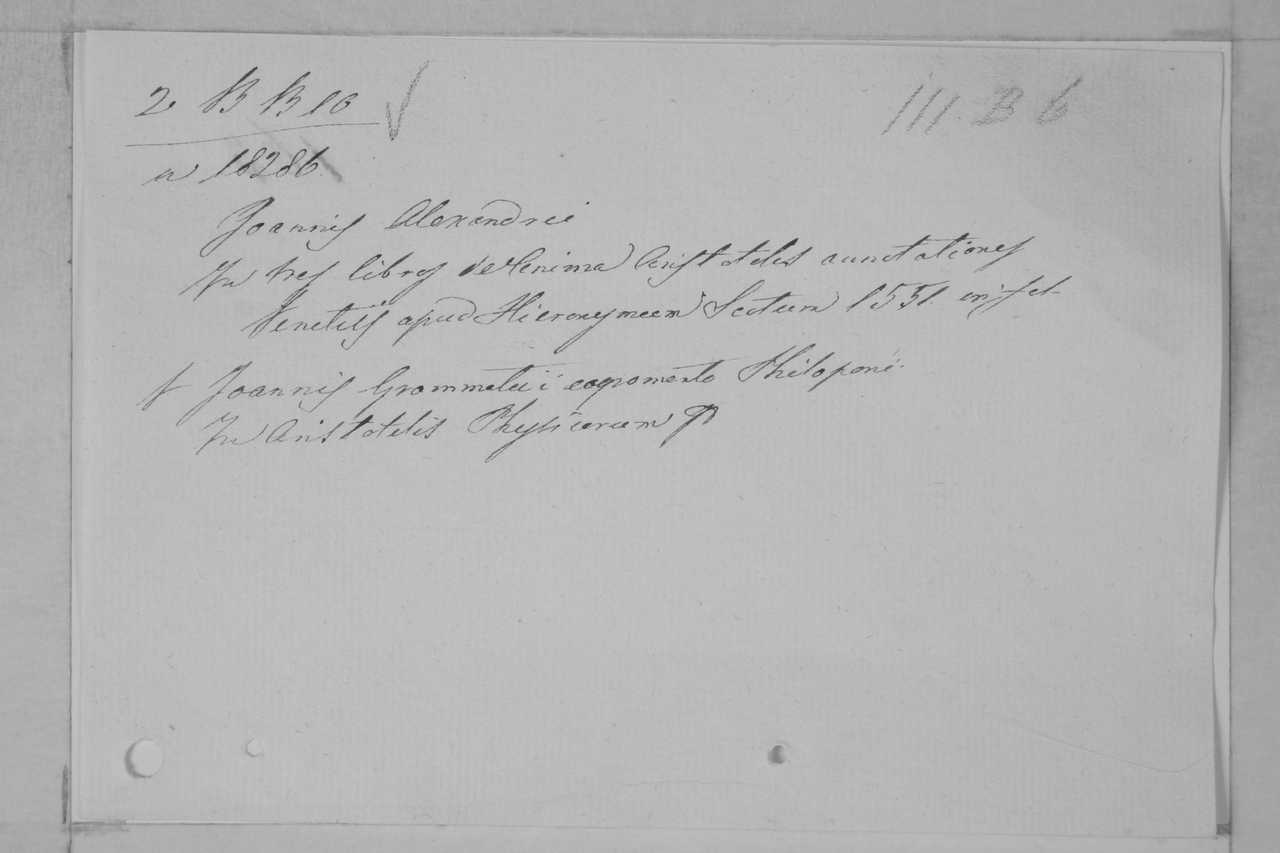 2 B B 10 III B 6
a 18286
Joannis Alexandrei
In tres libros de Anima Aristotelis annotationes
Venetiis apud Hieronymum Scotum 1551 in fol
Joannis Grammatici cognomento Philoponi
In Aristotelis Physicorum